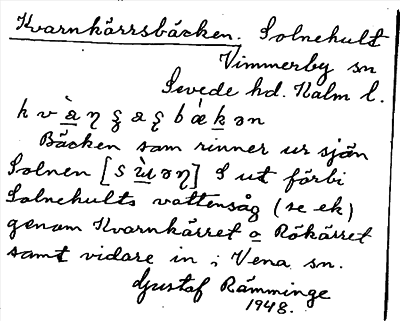 Kvarnkärrsbäcken. Solnehult
Vimmerby sn
Sevede hd. Kalm l.
Bäcken som rinner ur sjön
Solnen [sùəη] S ut förbi
Solnehults vattensåg (se ek)
genom Kvarnkärret o Rökärret
samt vidare in i Vena sn.
Gustaf Rämminge
1948.